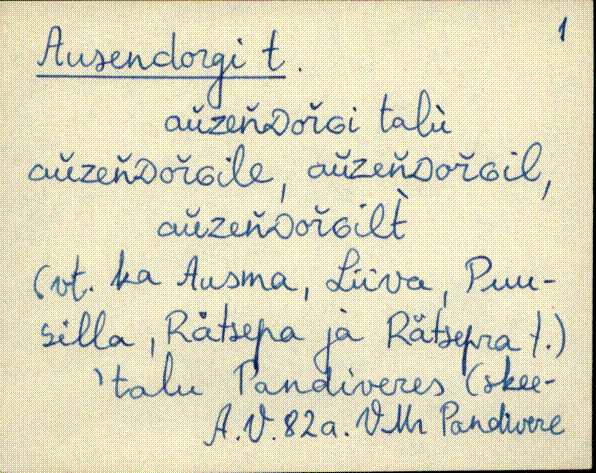 1
Ausendorgi t.
aŭzeňDořGi talù
aŭzeňDořGile, aŭzeňDořGil,
aŭzeňDořGilt̀
(vt. ka Ausma, Liiva, Puu-
silla, Rätsepa ja Rätsepra t.)
'talu Pandiveres (skee-
A.V. 82a. VMr Pandivere